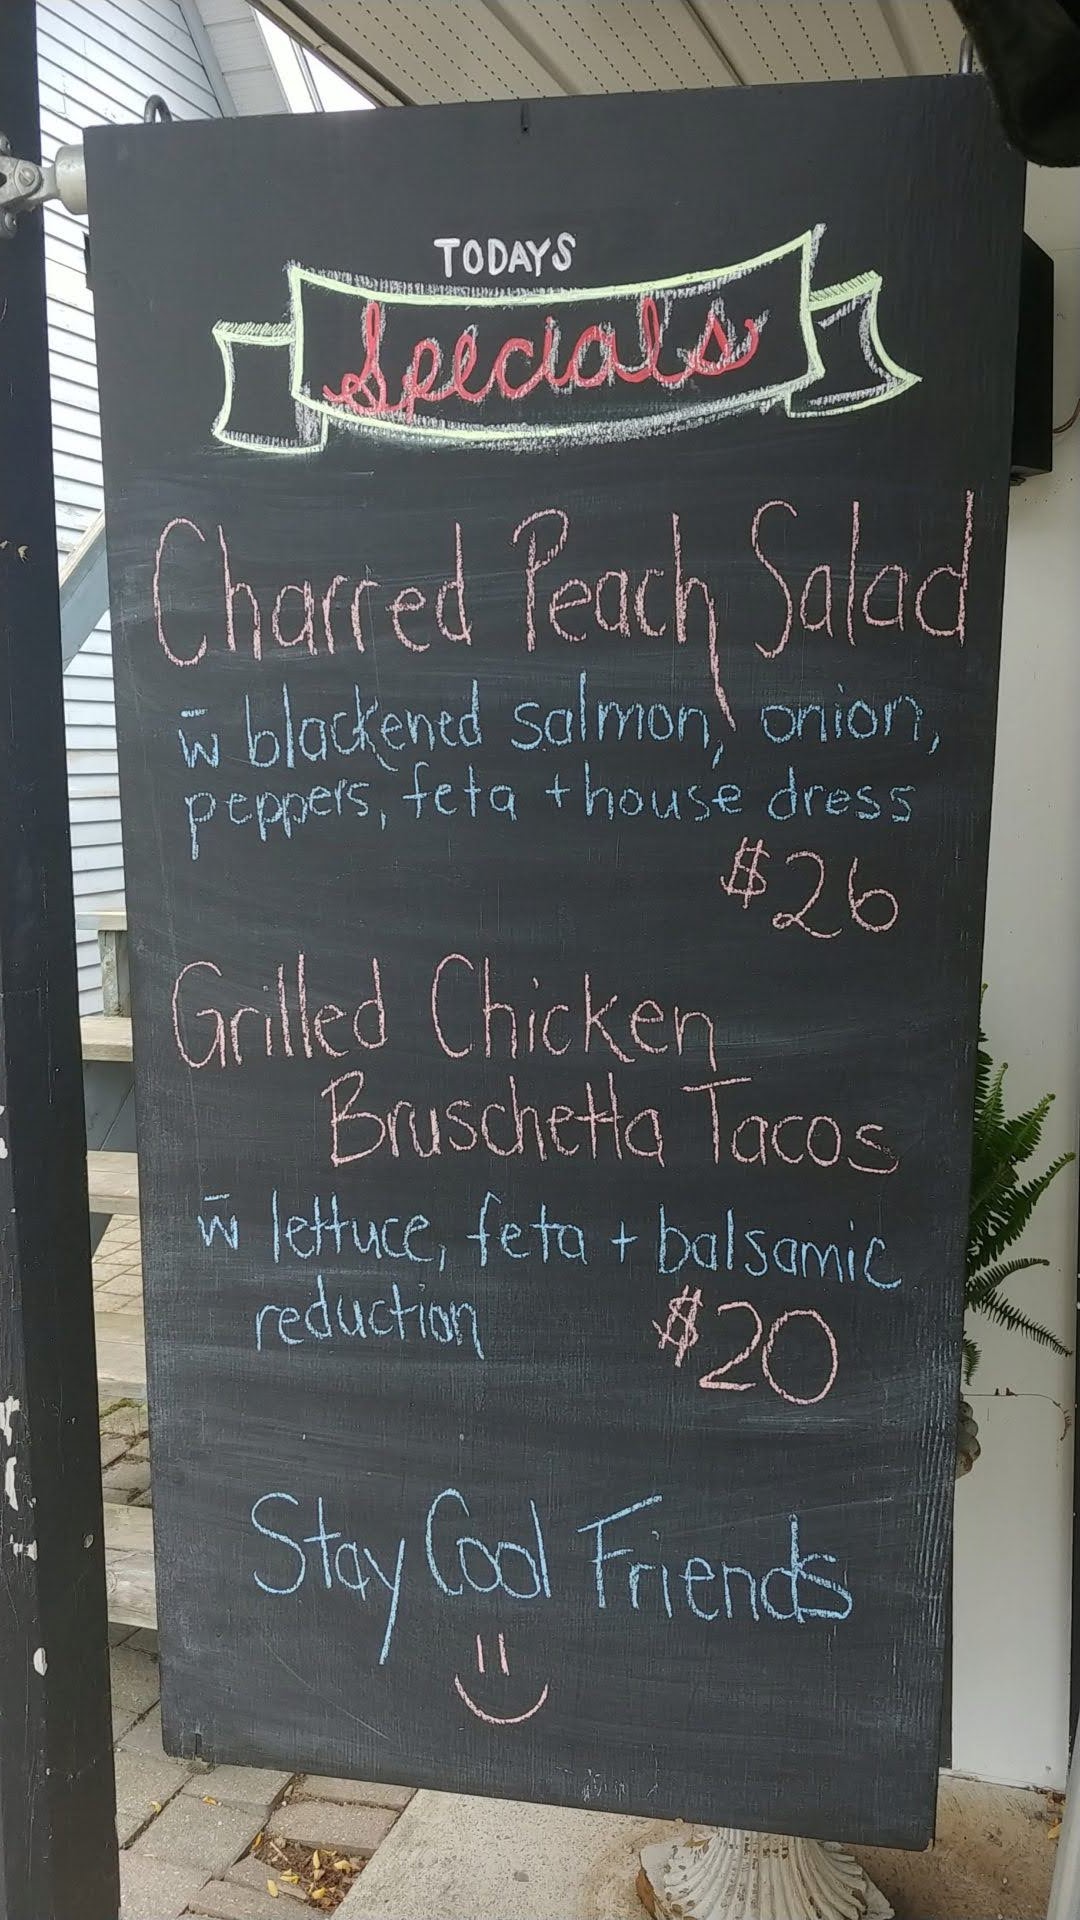 TODAYS
Specials
Charred Peach Salad
w̄ blackened salmon, onion,
peppers, feta + house dress
$26
Grilled Chicken
Bruschetta Tacos
w̄ lettuce, feta + balsamic
reduction $20
Stay Cool Friends